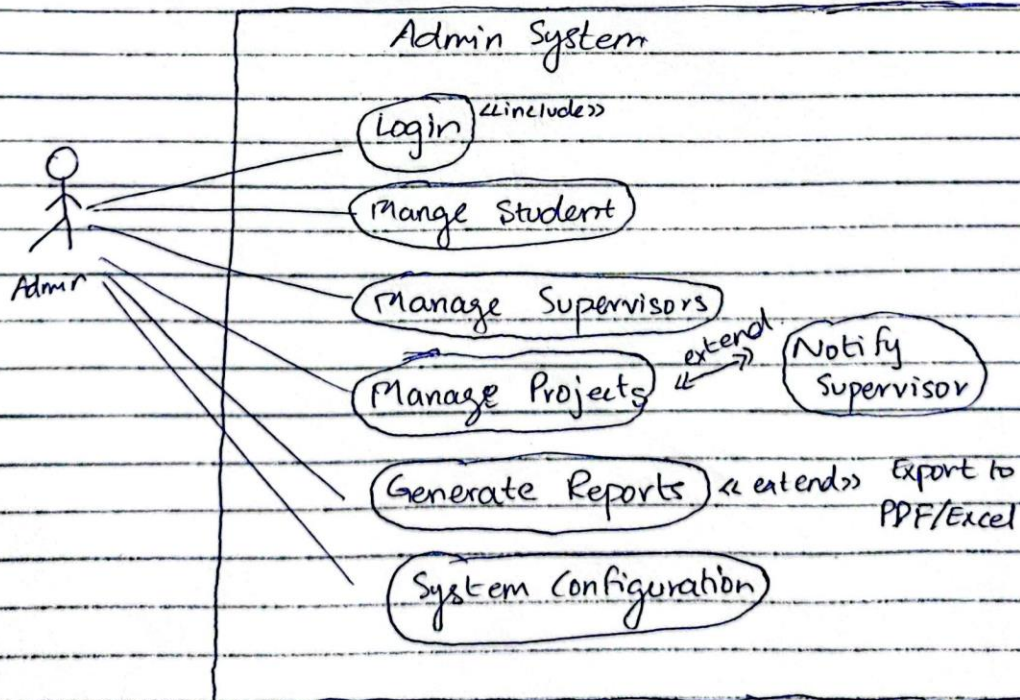 Admin System
Login <<include>>
Mange Student
Admin
Manage Supervisors
Manage Projects <<extend>> Notify
Supervisor
Generate Reports << extend>> Export to
PDF/Excel
System Configuration